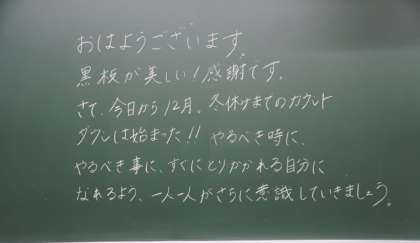 おはようございます。
黒板が美しい!感謝です。
さて、今日から12月。冬休みまでのカウント
ダウンは始まった!!やるべき時に、
やるべき事に、すぐにとりかかれる自分に
なれるよう、一人一人がさらに意識していきましょう。